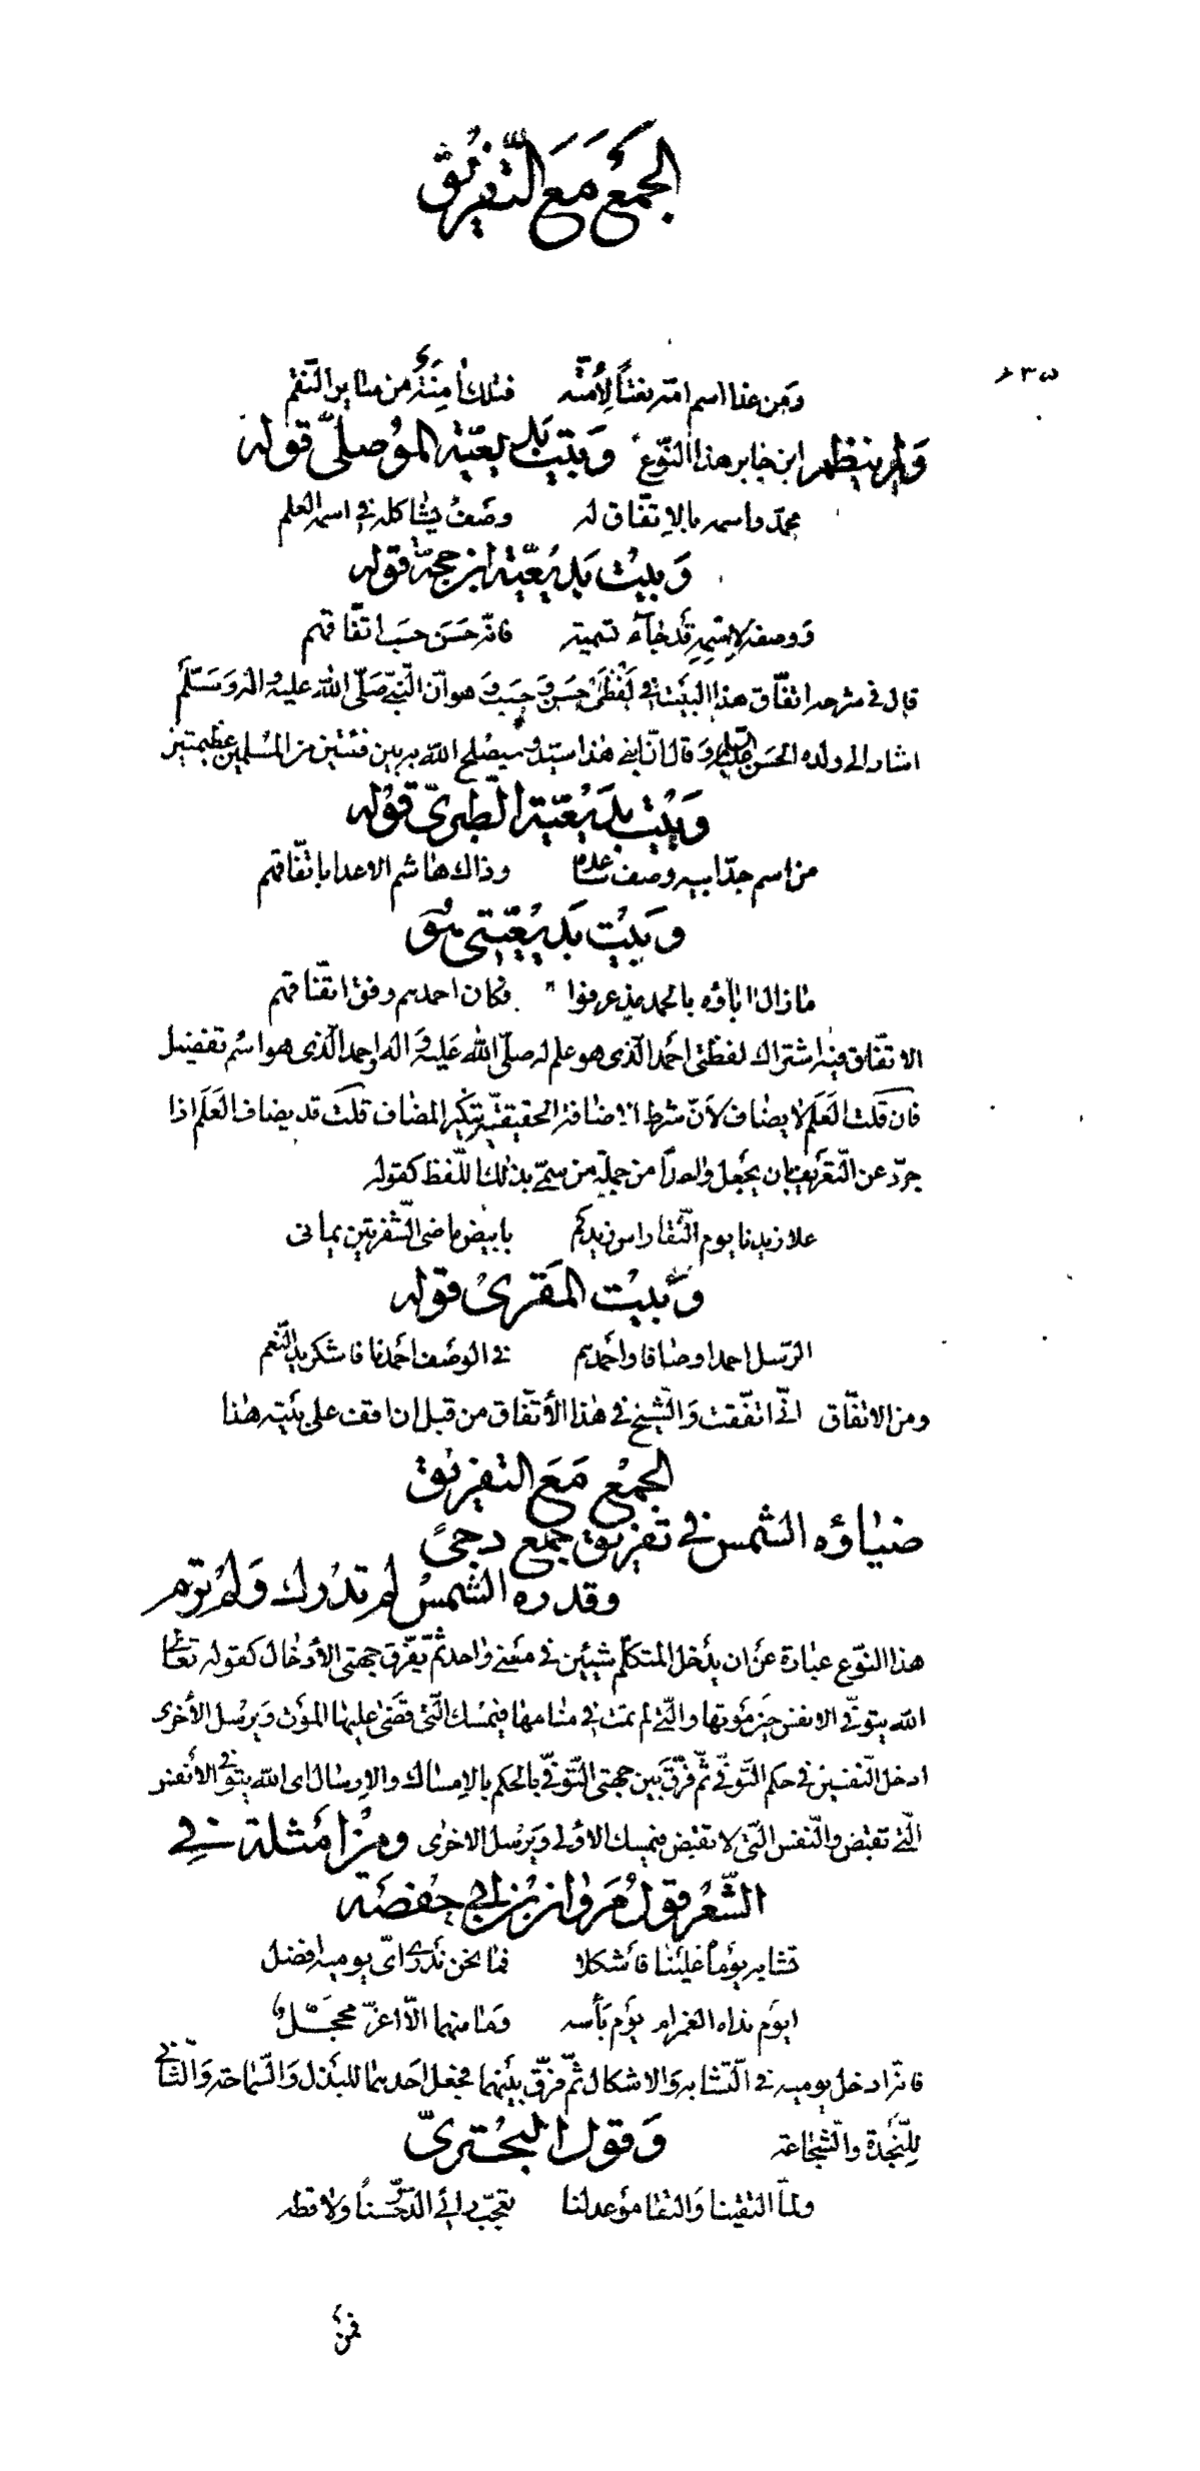 الجمع مع التفريق
ومن غدا اسم امته نعتاً لأمته فتلك آمنة من سائر النقم
ولم ينظم ابن جابر هذا النوع وبيت بديعية الموصلي قوله
محمد واسمه بالاتفاق له وصف يشاكله في اسمه العلم
وبيت بديعية ابن حجة قوله
ووصفه لابنه قد جاء تسميته فانه حسن حسب اتفاقهم
قال في شرحه اتفاق هذا البيت في لفظي حسن وحسب وهو أن النبي صلى الله عليه واله وسلم
اشار الى ولده الحسن عليه السلام وقال ان ابني هذا سيد وسيصلح الله به بين فئتين من المسلمين عظيمتين
وبيت بديعية الطبري قوله
من اسم جد ابيه وصف عدم وذاك هاشم الاعدا باتفاقهم
وبيت بديعيتي هو
ما زال اباؤه بالحمد مذ عرفوا فكان احمدهم وفق اتفاقهم
الاتفاق فيه اشتراك لفظتي أحمد الذي هو علم له صلى الله عليه واله واحمد الذي هو اسم تفضيل
فان قلت العلم لا يضاف لأن شرط الاضافة الحقيقية تنكير المضاف قلت قد يضاف العلم اذا
جرد عن التعريف بان يجعل واحدا من جملة من سمي بذلك اللفظ كقوله
علا زيدنا يوم النقا راس زيدكم بابيض ماضي الشفرتين يماني
وبيت المقري قوله
الرسل احمد اوصافا واحمدهم في الوصف احمدنا فاشكر يد النعم
ومن الاتفاق اني اتفقت والشيخ في هذا الأتفاق من قبل ان اقف على بيته هنا
الجمع مع التفريق
ضياؤه الشمس في تفريق جمع دجىً
وقدره الشمس لم تدرك ولم ترم
هذا النوع عبارة عن ان يدخل المتكلم شيئين في معنى واحد ثم يفرق جهتي الأدخال كقوله تعالى
الله يتوفى الانفس حين موتها والتي لم تمت في منامها فيمسك التي قضى عليها الموت ويرسل الأخرى
ادخل النفسين في حكم التوفي ثم فرق بين جهتي التوفي بالحكم بالإمساك والإرسال اى الله يتوفى الأنفس
التي تقبض والنفس التي لا تقبض فيمسك الاولى ويرسل الاخرى ومن أمثلة في
الشعر قول مروان بن ابي حفصة
تشابه يوماً علينا فأشكلا فما نحن ندري اى يوميه افضل
ايوم نداه الغمر ام يوم بأسه وما منهما الا اغر محجل
فانه ادخل يوميه في التشابه والاشكال ثم فرق بينهما فجعل احدهما للبذل والسماحة والثاني
للنجدة والشجاعة وقول البحتري
ولما التقينا والنقا موعد لنا تعجب رائي الدر حسناً ولاقطه
فمن